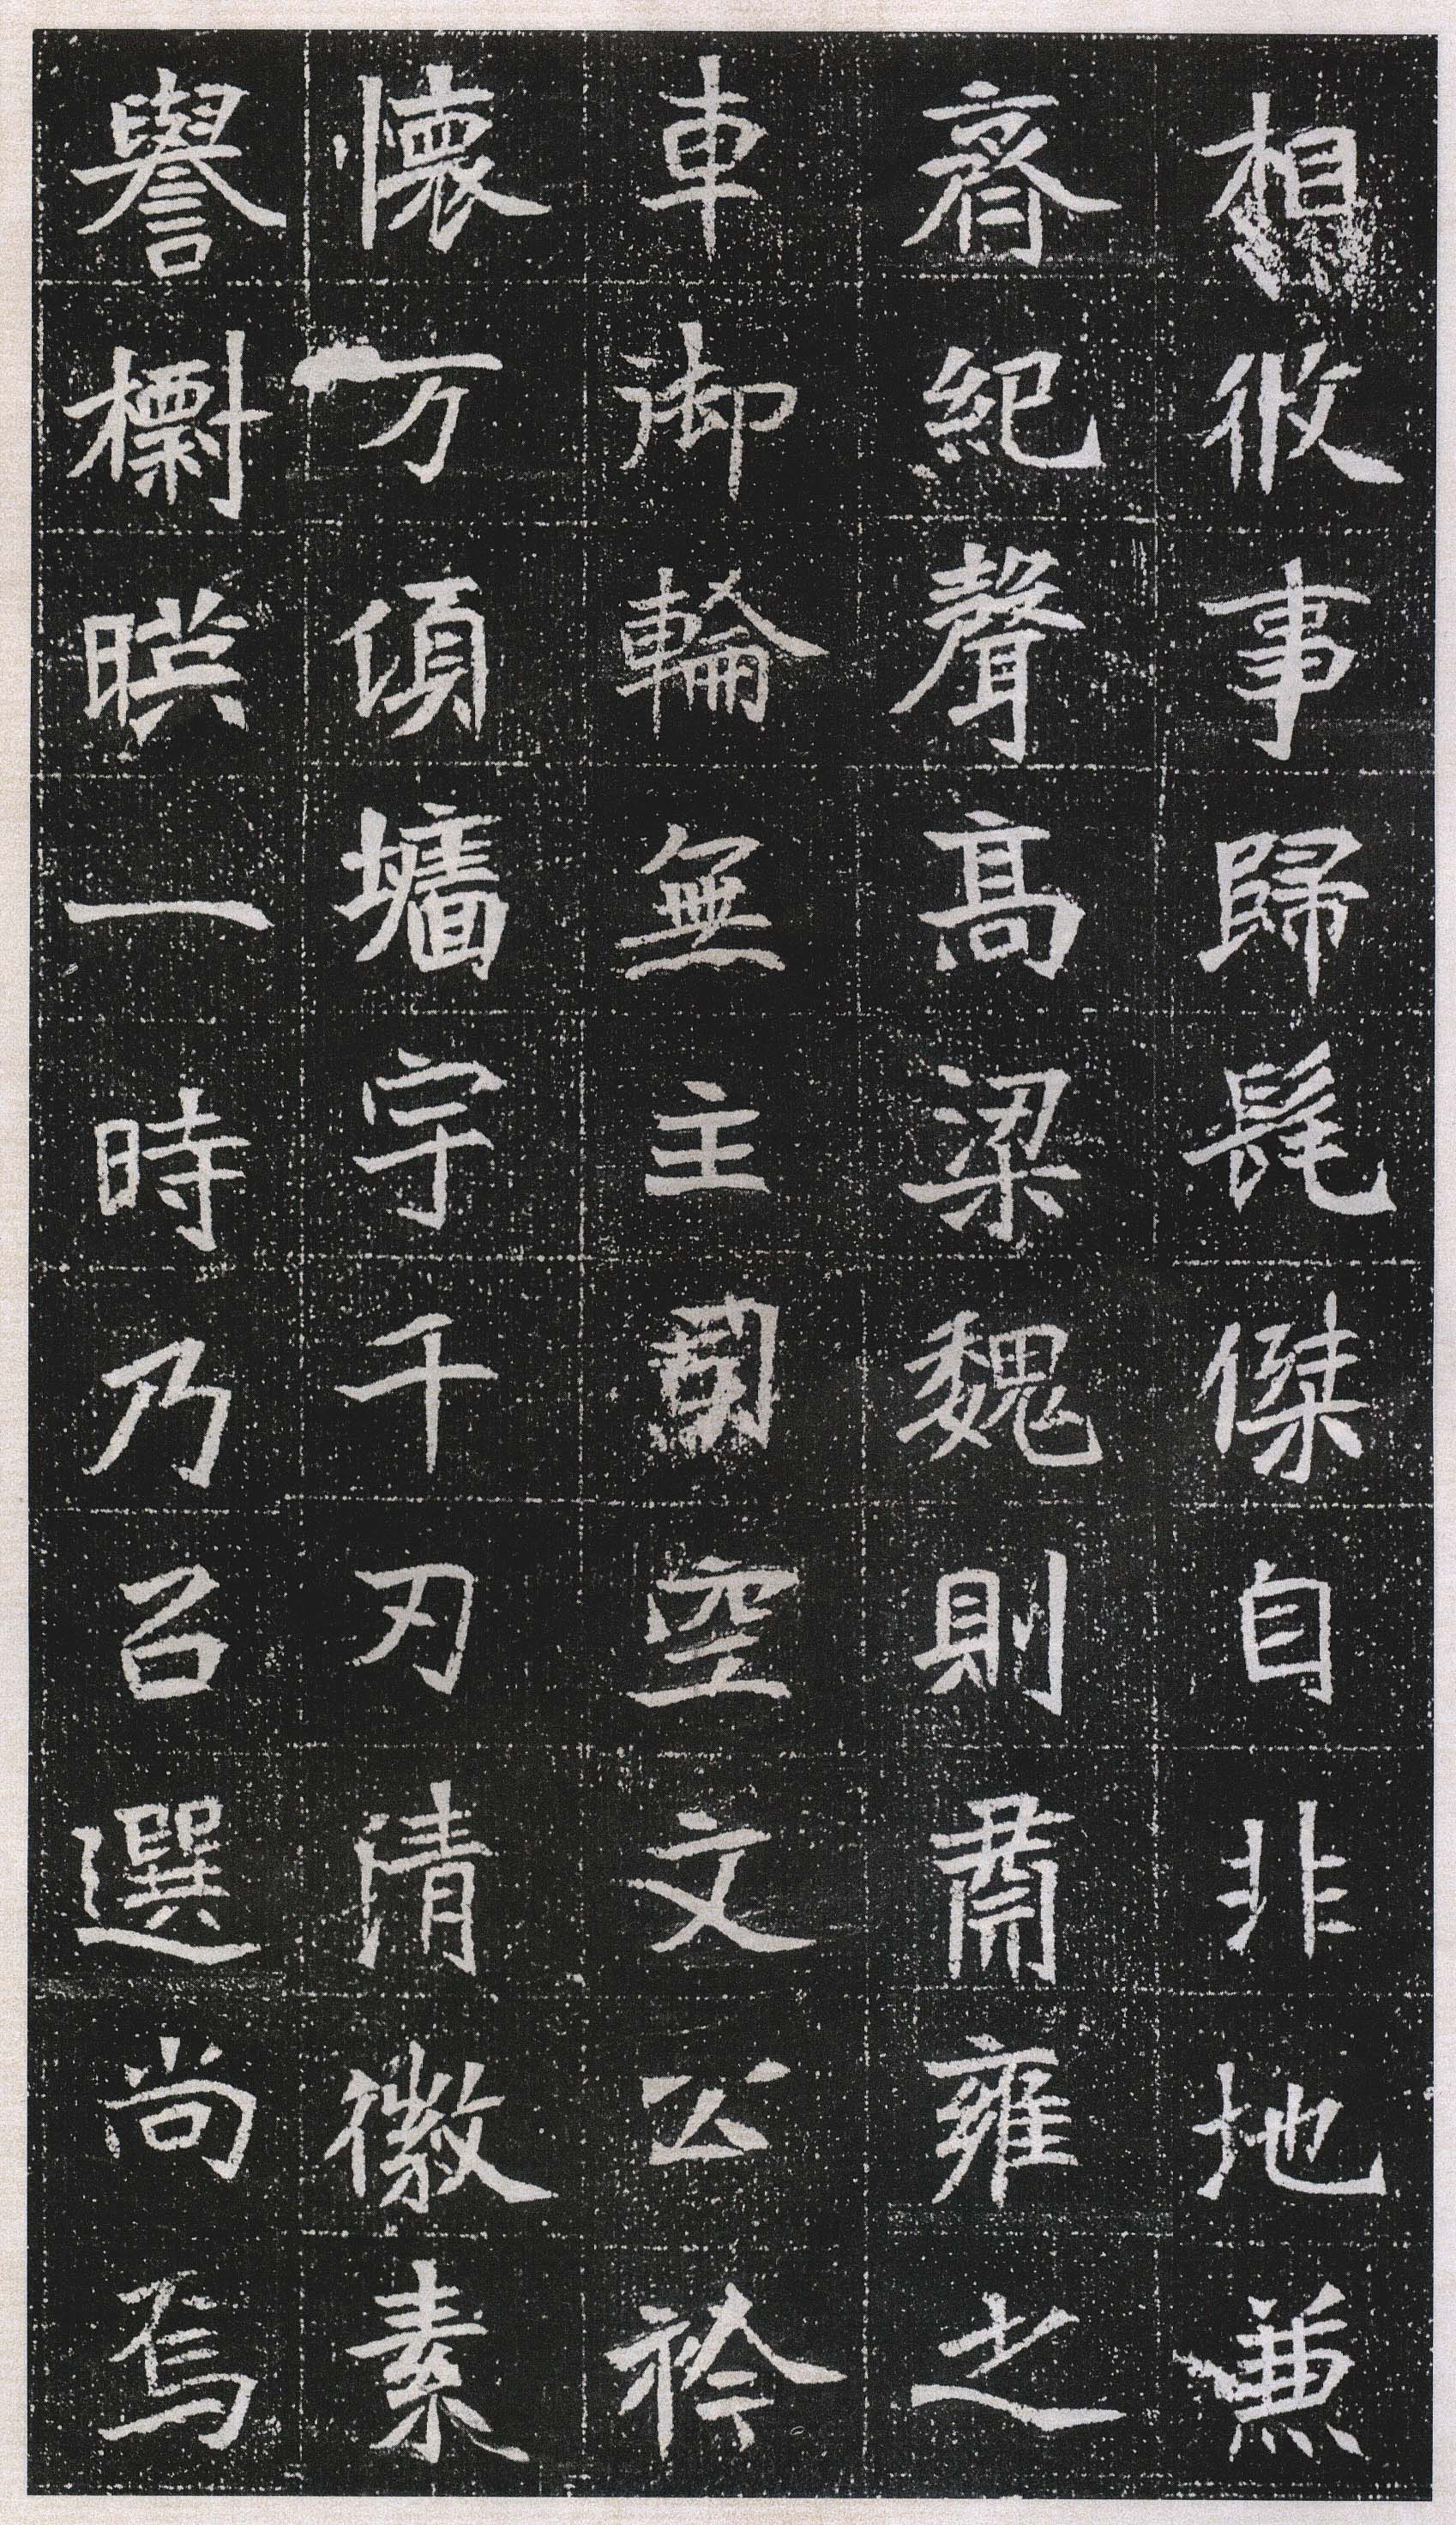 相攸事歸髦傑自非地兼
齊紀聲髙梁魏則肅雍之
車御輪無主司空文公衿
懷万頃墻宇千刃清徽素
譽標暎一時乃召選尚焉